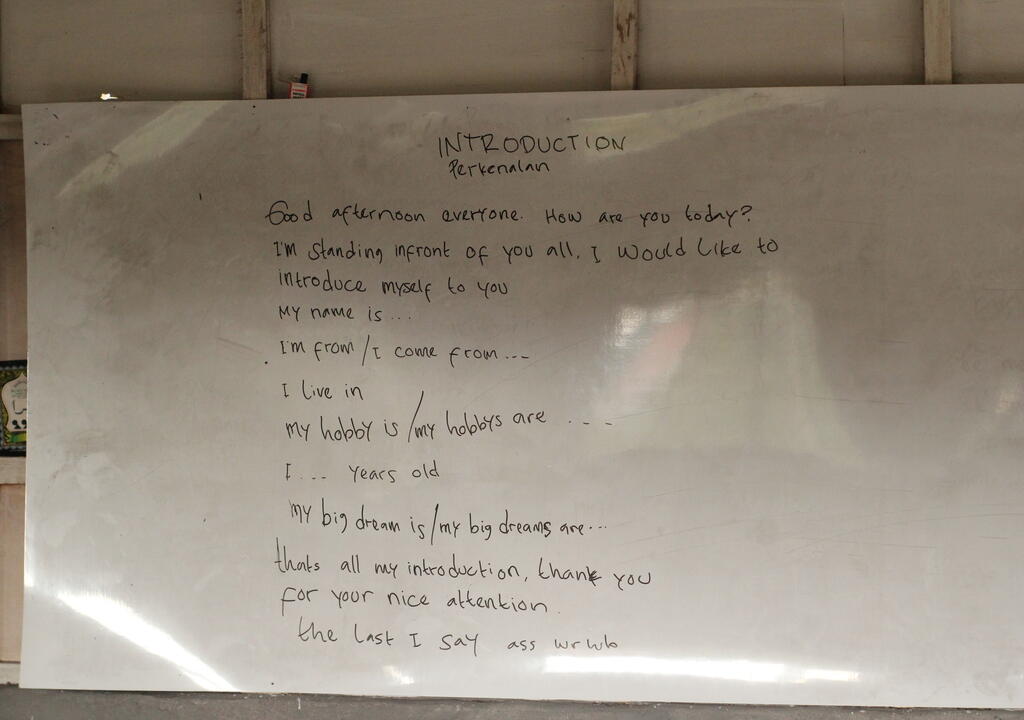 INTRODUCTION
Perkenalan
Good afternoon everyone. How are you today?
I'm standing infront of you all, I would like to
introduce myself to you
My name is...
I'm from / I come from ---
I live in
my hobby is / my hobbys are ----
I... years old
My big dream is / my big dreams are...
thats all my introduction, thank you
for your nice attention.
the last I say ass wr wb